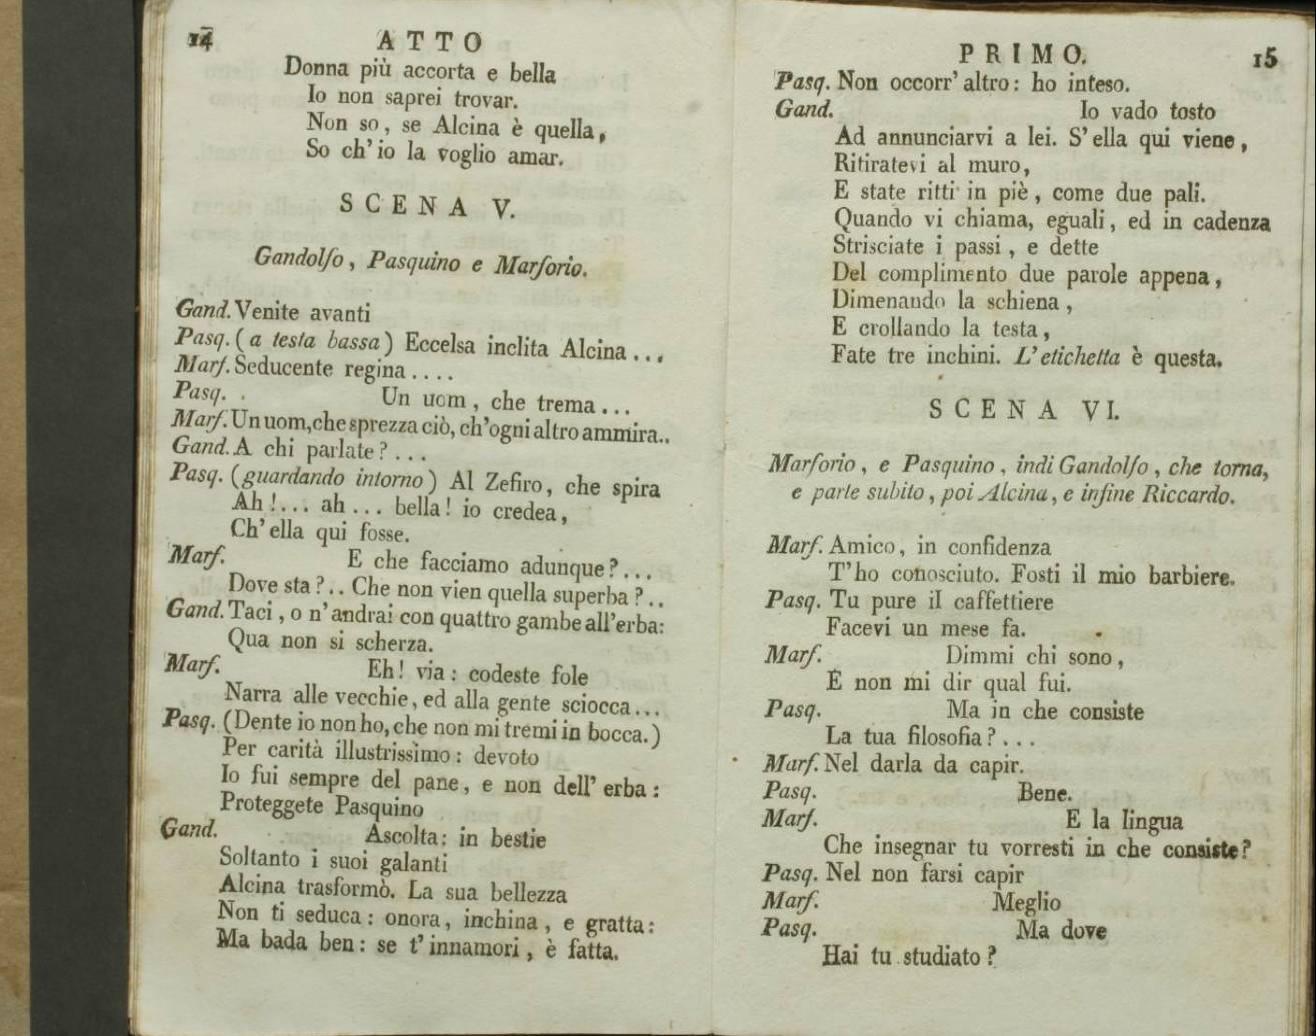 14
ATTO
Donna più accorta e bella
Io non saprei trovar.
Non so, se Alcina è quella,
So ch'io la voglio amar.
SCENA V.
Gandolfo, Pasquino e Marforio.
Gand. Venite avanti
Pasq. (a testa bassa) Eccelsa inclita Alcina...
Marf. Seducente regina....
Pasq. Un uom, che trema...
Marf. Un uom, che sprezza ciò, ch'ogni altro ammira..
Gand. A chi parlate?...
Pasq. (guardando intorno) Al Zefiro, che spira
Ah!... ah... bella! io credea,
Ch'ella qui fosse.
Marf. E che facciamo adunque?...
Dove sta?.. Che non vien quella superba?..
Gand. Taci, o n'andrai con quattro gambe all'erba:
Qua non si scherza.
Marf. Eh! via: codeste fole
Narra alle vecchie, ed alla gente sciocca...
Pasq. (Dente io non ho, che non mi tremi in bocca.)
Per carità illustrissimo: devoto
Io fui sempre del pane, e non dell'erba:
Proteggete Pasquino
Gand. Ascolta: in bestie
Soltanto i suoi galanti
Alcina trasformò. La sua bellezza
Non ti seduca: onora, inchina, e gratta:
Ma bada ben: se t'innamori, è fatta.
PRIMO.
15
Pasq. Non occorr'altro: ho inteso.
Gand. Io vado tosto
Ad annunciarvi a lei. S'ella qui viene,
Ritiratevi al muro,
E state ritti in piè, come due pali.
Quando vi chiama, eguali, ed in cadenza
Strisciate i passi, e dette
Del complimento due parole appena,
Dimenando la schiena,
E crollando la testa,
Fate tre inchini. L'etichetta è questa.
SCENA VI.
Marforio, e Pasquino, indi Gandolfo, che torna,
e parte subito, poi Alcina, e infine Riccardo.
Marf. Amico, in confidenza
T'ho conosciuto. Fosti il mio barbiere.
Pasq. Tu pure il caffettiere
Facevi un mese fa.
Marf. Dimmi chi sono,
E non mi dir qual fui.
Pasq. Ma in che consiste
La tua filosofia?...
Marf. Nel darla da capir.
Pasq. Bene.
Marf. E la lingua
Che insegnar tu vorresti in che consiste?
Pasq. Nel non farsi capir
Marf. Meglio
Pasq. Ma dove
Hai tu studiato?